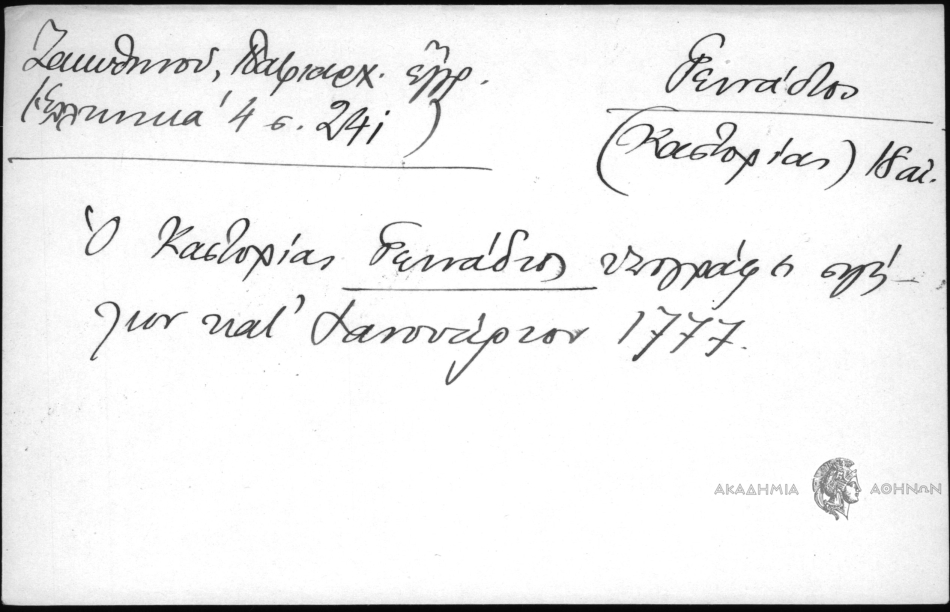 Ζακυθηνού, Πατριαρχ. έγγρ.
(Ἑλληνικά 4 σ. 241)
Γεννάδιος
(Καστορίας) 18 αἰ.
Ὁ Καστορίας Γεννάδιος ὑπογράφει σιγίλ-
λιον κατ' Ἰανουάριον 1777.
ΑΚΑΔΗΜΙΑ ΑΘΗΝΩΝ